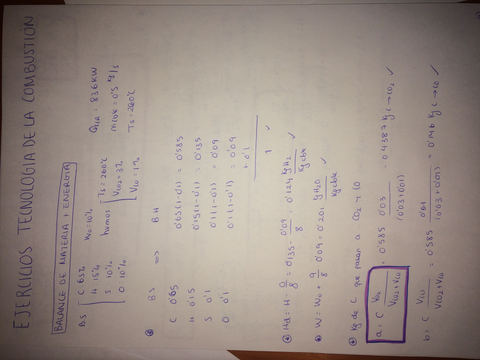 EJERCICIOS TECNOLOGIA DE LA COMBUSTIÓN
BALANCE DE MATERIA Y ENERGIA
B.S { C 65% W0=10% humos { Ts=260ºC
H 15% VCO2=3%
S 10% VCO=1%
O 10%
mcbk=0'5 kg/s
Ts=260ºC
B.S ⇒ B.H
C 0'65 0'65(1-0'1) = 0'585
H 0'15 0'15(1-0'1) = 0'135
S 0'1 0'1(1-0'1) = 0'09
O 0'1 0'1(1-0'1) = 0'09
+ 0'1
1 ✓
Hd = H - O/8 = 0'135 - 0'09/8 = 0'124 kg H2/kg cbk ✓
W = W0 + 9/8 0'09 = 0'201 kg H2O/kg cbk ✓
kg de C que pasan a CO2 y CO
0'03/(0'03+0'01) = 0'4387 kg C→CO2 ✓
b = C VCO/(VCO2+VCO) = 0'585 0'01/(0'03+0'01) = 0'146 kg C→CO ✓